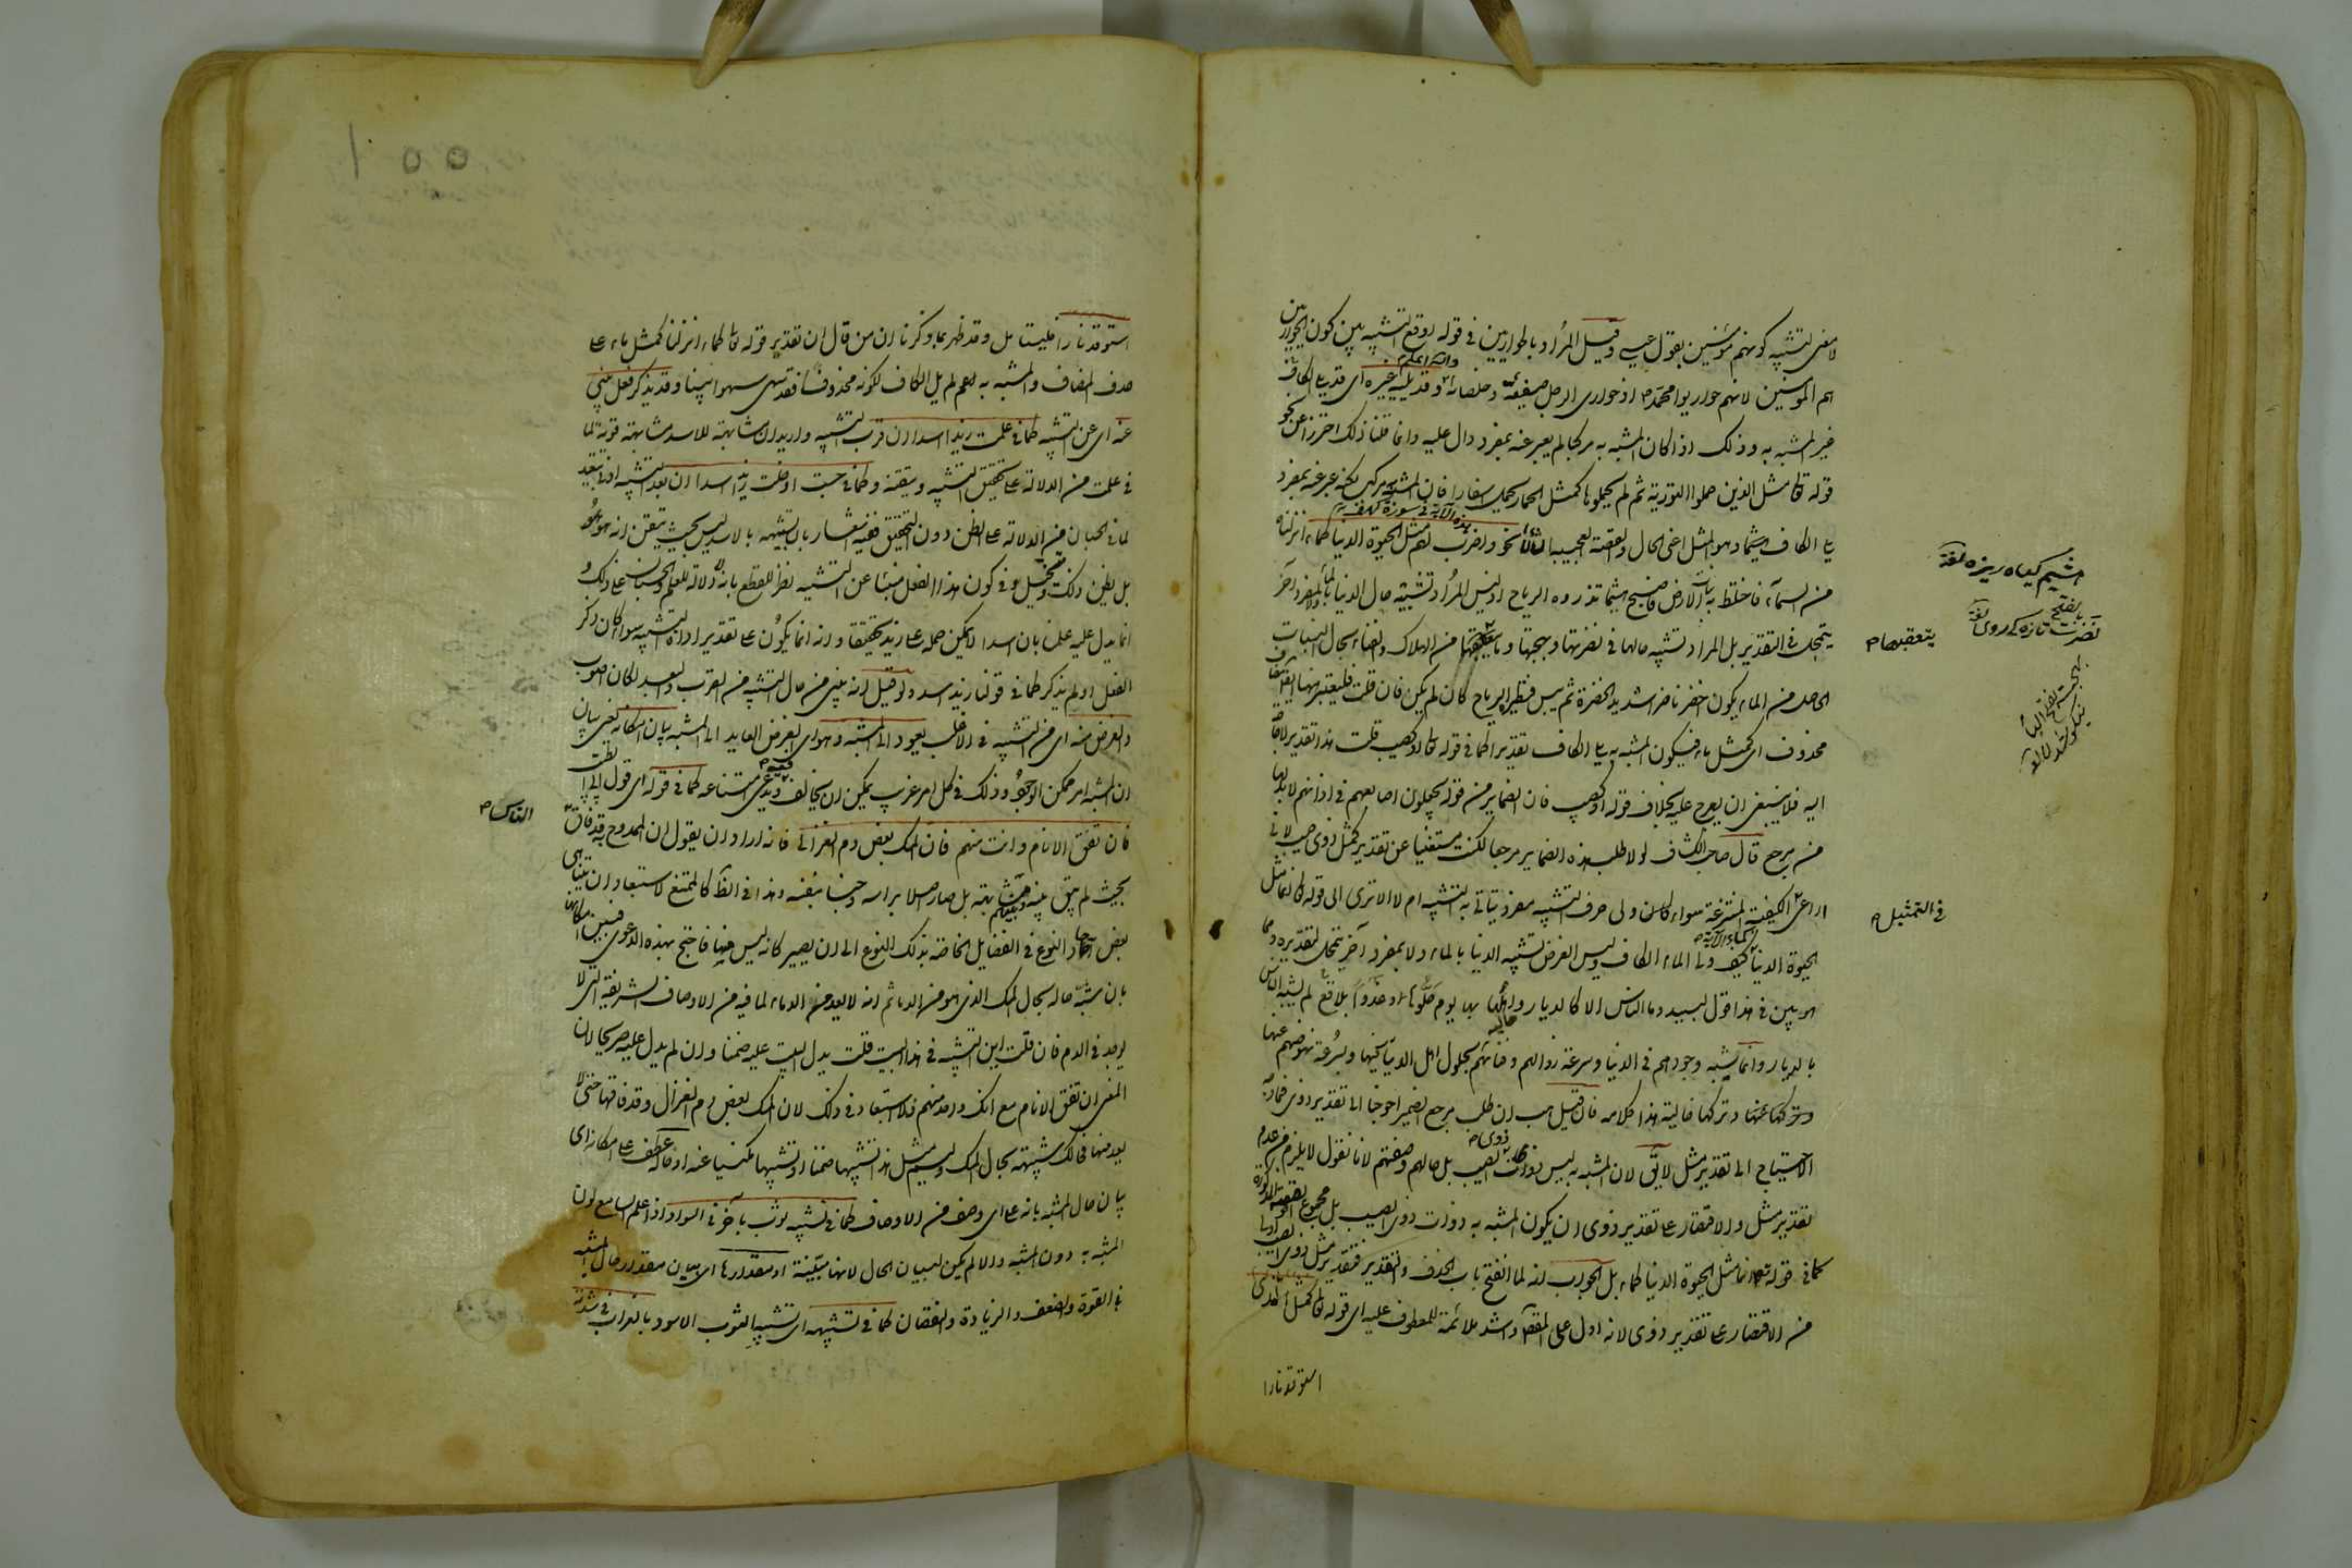 لا معنى لتشبيه كونهم مؤمنين بقول عيسى وقيل المراد بالحواريين في قوله اوقع التشبيه بين كون الحواريين
هم المؤمنين لانهم حواريوا محمد م اذ حوارى الرجل صفيه وخلصانه وقد يليه غيره اى قد يلى الكاف
والله اعلم
غير المشبه به وذلك اذا كان المشبه به مركبا لم يعبر عنه بمفرد دال عليه وانما قلنا ذلك احترازا عن نحو
قوله تعالى مثل الذين حملوا التورية ثم لم يحملوها كمثل الحمار يحمل اسفارا فان المشبه به مركب لكنه عبر عنه بمفرد
يلى الكاف وهو المثل اعنى الحال والقصة العجيبة الشأن نحو واضرب لهم مثل الحيوة الدنيا كماء انزلناه
هذه الآية في سورة كهف
من السماء فاختلط به نبات الارض فاصبح هشيما تذروه الرياح اذ ليس المراد تشبيه حال الدنيا بالماء ولا بمفرد آخر
يتمحل في التقدير بل المراد تشبيه حالها في نضرتها وبهجتها وما يتعقبها من الهلاك والفناء بحال النبات
الحاصل من الماء يكون اخضر ناضرا شديد الخضرة ثم ييبس فتطيره الرياح كان لم يكن فان قلت فليعتبر
محذوف اى كمثل ماء فيكون المشبه به يلى الكاف تقديرا كما في قوله تعالى او كصيب قلت هذا تقدير لا
اليه فلا ينبغي ان يعرج عليه بخلاف قوله او كصيب فان الضماير من قوله يجعلون اصابعهم في اذانهم لا بد لها
من مرجع قال صاحب الكشاف لولا طلب هذه الضماير مرجعا لكنت مستغنيا عن تقدير كمثل ذوى صيب لانى
اراعى الكيفية المنتزعة سواء كان ولى حرف التشبيه مفرد يتأتى به التشبيه ام لا الا ترى الى قوله انما مثل
الحيوة الدنيا كيف ولى الماء الكاف وليس الغرض تشبيه الدنيا بالماء ولا بمفرد آخر يتمحل لتقديره ومما
كماء الآية
هو بين في هذا قول لبيد وما الناس الا كالديار واهلها بها يوم حلوها وغدوا بلاقع لم يشبه الناس
بالديار وانما شبه وجودهم في الدنيا وسرعة زوالهم وفنائهم بحلول اهل الديار فيها وسرعة نهوضهم عنها
وتركها خالية هذا كلامه فان قيل هب ان طلب مرجع الضمير احوجنا الى تقدير ذوى فما
الاحتياج الى تقدير مثل لان المشبه به ليس ذوات ذوى الصيب بل حالهم وصفتهم لانا نقول لا يلزم من عدم
تقدير مثل والاقتصار على تقدير ذوى ان يكون المشبه به ذوات ذوى الصيب بل مجموع القصة المذكورة
كما في قوله تعالى انما مثل الحيوة الدنيا كماء بل الجواب انه لما انفتح باب الحذف والتقدير فتقدير مثل ذوى اولى
من الاقتصار على تقدير ذوى لانه ادل على المقصود واشد ملائمة للمعطوف عليه اى قوله تعالى كمثل الذى
استوقد نارا
هشيم كياه ريزه لغة
نضرت بالفتح تازه كى روى لغة
يتعقبها م
في التمثيل م
استوقد نارا فليتأمل وقد ظهر بما ذكرنا ان من قال ان تقدير قوله تعالى كماء انزلنا كمثل ماء على
حذف المضاف والمشبه به لم يل الكاف لكونه محذوفا فقد سهى سهوا بينا وقد يذكر فعل ينبئ
عنه اى عن التشبيه كما في علمت زيدا اسدا ان قرب التشبيه واريد ان مشابهته للاسد مشابهة قوية لما
في علمت من الدلالة على تحقيق التشبيه وتيقنه وكما في حسبت او خلت زيدا اسدا ان بعد التشبيه ادنى تبعيد
لما في الحسبان من الدلالة على الظن دون التحقيق ففيه اشعار بان تشبيهه بالاسد ليس بحيث يتيقن انه هو هو
بل يظن ذلك ويتخيل وفي كون هذا الفعل منبئا عن التشبيه نظر للقطع بانه لا دلالة للعلم والحسبان على ذلك و
انما يدل عليه علمنا بان اسدا لا يمكن حمله على زيد تحقيقا وانه انما يكون على تقدير اداة التشبيه سواء كان ذكر
الفعل او لم يذكر كما في قولنا زيد اسد ولو قيل انه ينبئ عن حال التشبيه من القرب والبعد لكان اصوب
والغرض منه اى من التشبيه في الاغلب يعود الى المشبه وهو اى الغرض العايد الى المشبه بيان امكانه يعنى بيان
ان المشبه امر ممكن الوجود وذلك في كل امر غريب يمكن ان يخالف فيه ويدعى امتناعه كما في قوله اى قول ابى الطيب
فان تفق الانام وانت منهم فان المسك بعض دم الغزال فانه اراد ان يقول ان الممدوح قد فاق
الناس م
بحيث لم يبق بينه وبينهم مشابهة بل صار اصلا برأسه وجنسا بنفسه وهذا في الظاهر كالممتنع لاستبعاد ان يتناهى
بعض آحاد النوع في الفضايل الخاصة بذلك النوع الى ان يصير كانه ليس منها فاحتج بهذه الدعوى وبين امكانها
بان شبه حاله بحال المسك الذى هو من الدماء ثم انه لا يعد من الدماء لما فيه من الاوصاف الشريفة التى لا
يوجد في الدم فان قلت اين التشبيه في هذا البيت قلت يدل البيت عليه ضمنا وان لم يدل عليه صريحا لان
المعنى ان تفق الانام مع انك واحد منهم فلا استبعاد في ذلك لان المسك بعض دم الغزال وقد فاقها حتى لا
يعد منها فحالك شبيهة بحال المسك وليسم مثل هذا تشبيها ضمنيا او تشبيها مكنيا عنه او حاله عطف على امكانه اى
بيان حال المشبه بانه على اى وصف من الاوصاف كما في تشبيه ثوب بآخر في السواد اذا علم السامع لون
المشبه به دون المشبه والا لم يكن لبيان الحال لانها مبينة او مقدارها اى بيان مقدار حال المشبه
في القوة والضعف والزيادة والنقصان كما في تشبيهه اى تشبيه الثوب الاسود بالغراب في شدته